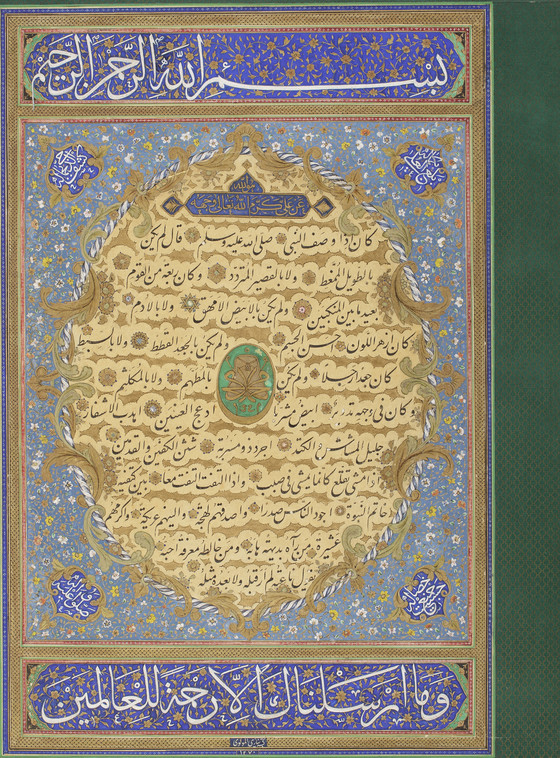 بسم الله الرحمن الرحيم
عن علي كرم الله تعالى وجهه
كان اذا وصف النبي صلى الله عليه وسلم قال لم يكن
بالطويل الممغط ولا بالقصير المتردد وكان ربعة من القوم
بعيد ما بين المنكبين ولم يكن بالابيض الامهق ولا بالادم
كان ازهر اللون حسن الجسم ولم يكن بالجعد القطط ولا بالسبط
كان جعدا رجلا ولم يكن بالمطهم ولا بالمكلثم
وكان في وجهه تدوير ابيض مشربا ادعج العينين اهدب الاشفار
جليل المشاش والكتد اجرد ذو مسربة شثن الكفين والقدمين
اذا مشى تقلع كانما يمشي في صبب واذا التفت التفت معا بين كتفيه
خاتم النبوة اجود الناس صدرا واصدقهم لهجة والينهم عريكة واكرمهم
عشيرة من رآه بديهة هابه ومن خالطه معرفة احبه
يقول ناعته لم ار قبله ولا بعده مثله
وما ارسلناك الا رحمة للعالمين